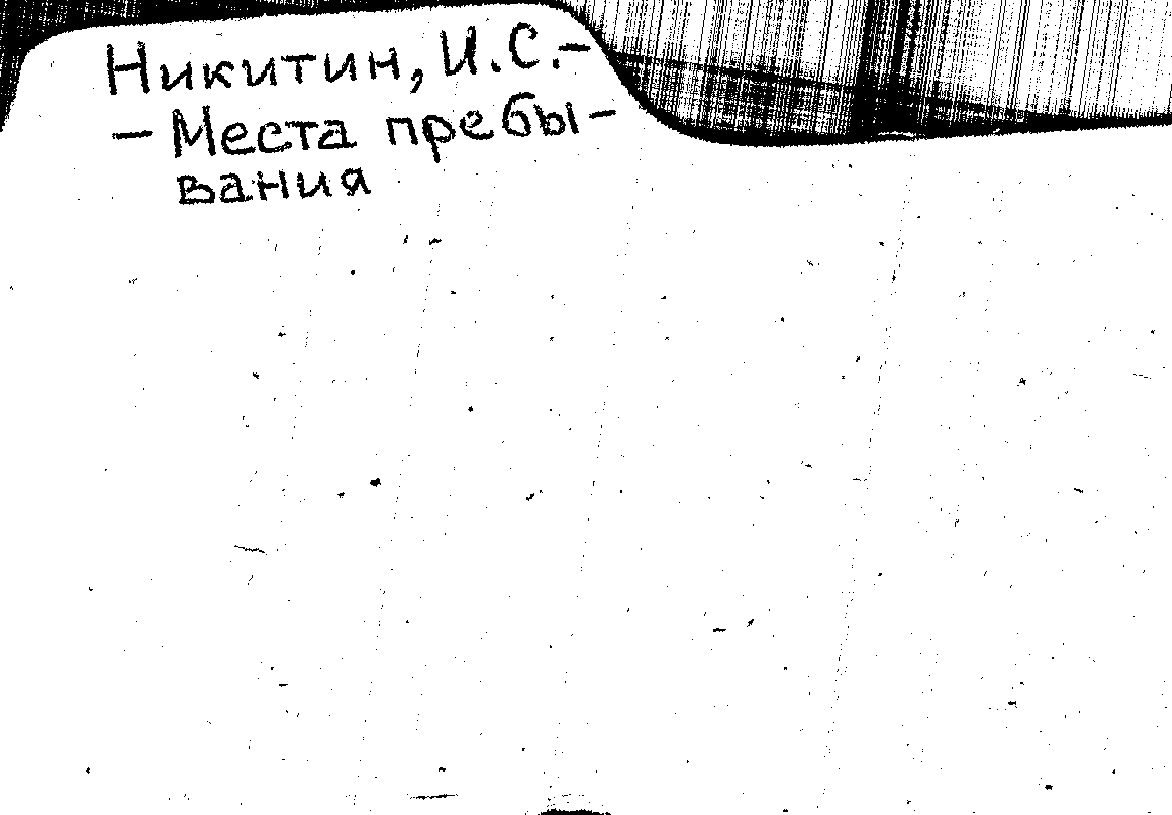 Никитин, И.С.–
– Места пребы-
вания